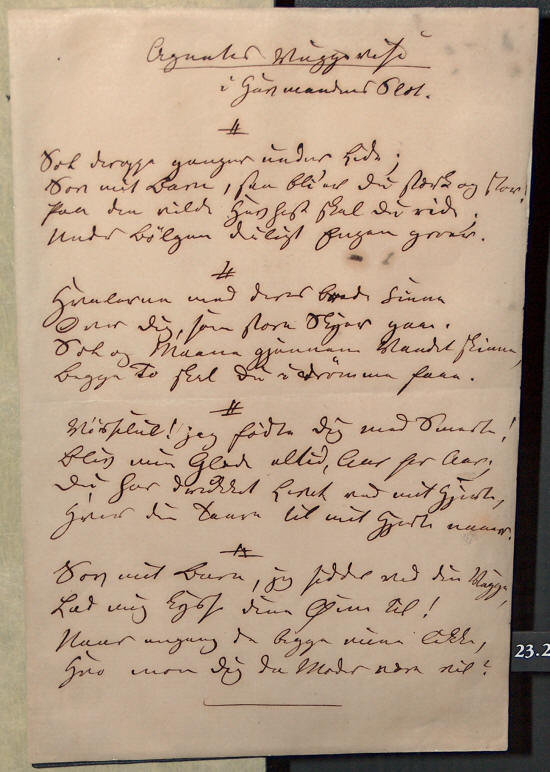 Agnetes Vuggevise
i Havmandens Slot.
Sol deroppe ganger under Lide;
Sov mit Barn, saa bli'er Du stærk og stor!
Paa den vilde Havhest skal Du ride.
Under Bølgen deiligst Engen groer.
Hvalerne med deres brede Finne
Over Dig, som store Skyer gaae.
Sol og Maane gjennem Vandet skinne,
Begge To skal Du i Drømme faae.
Visselul! jeg fødte Dig med Smerte!
Bliv min Glæde altid, Aar for Aar;
Du har drukket Livet ved mit Hjerte,
Hver din Taare til mit Hjerte naaer.
Sov mit Barn, jeg sidder ved din Vugge,
Lad mig kysse dine Øine til!
Naar engang de begge mine lukke,
Hvo mon Dig da Moder være vil?
23.2